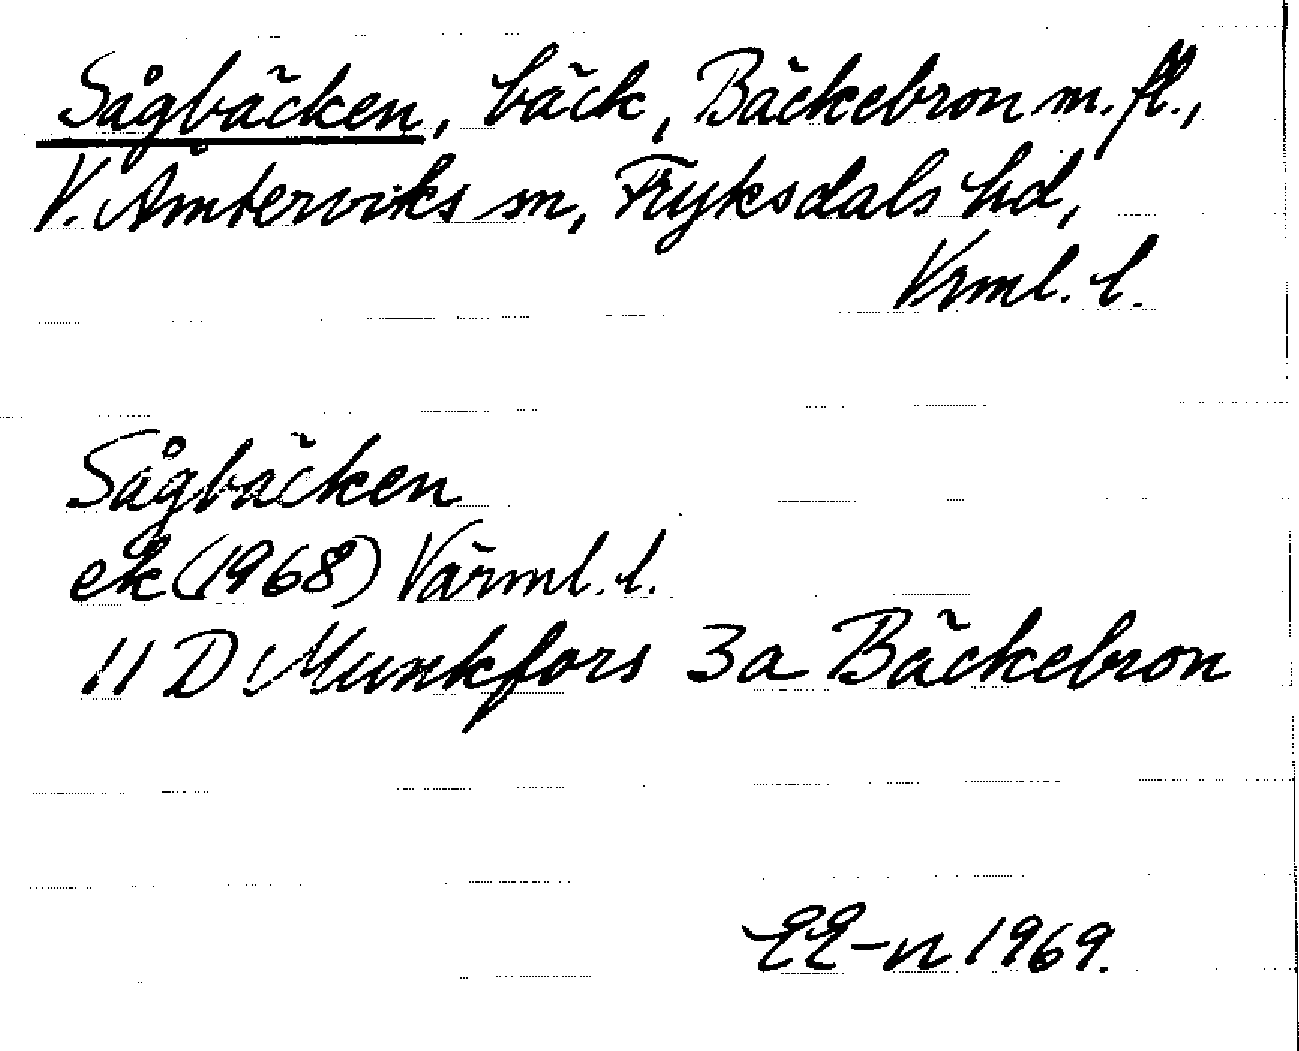 Sågbäcken, bäck, Bäckebron m. fl.,
V. Ämterviks sn, Fryksdals hd,
Vrml. l.
Sågbäcken
ek (1968) Värml. l.
11 D Munkfors 3a Bäckebron
EE-n 1969.